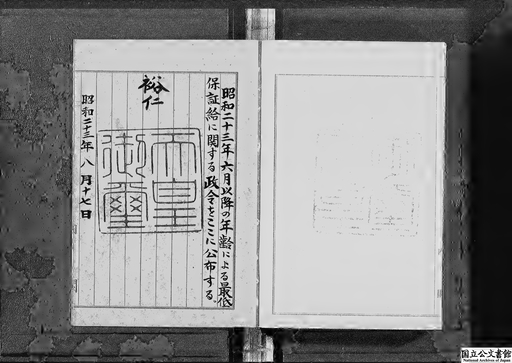 昭和二十三年六月以降の年齢による最低
保証給に関する政令をここに公布する。
裕仁
天皇
御璽
昭和二十三年八月十七日
国立公文書館
National Archives of Japan